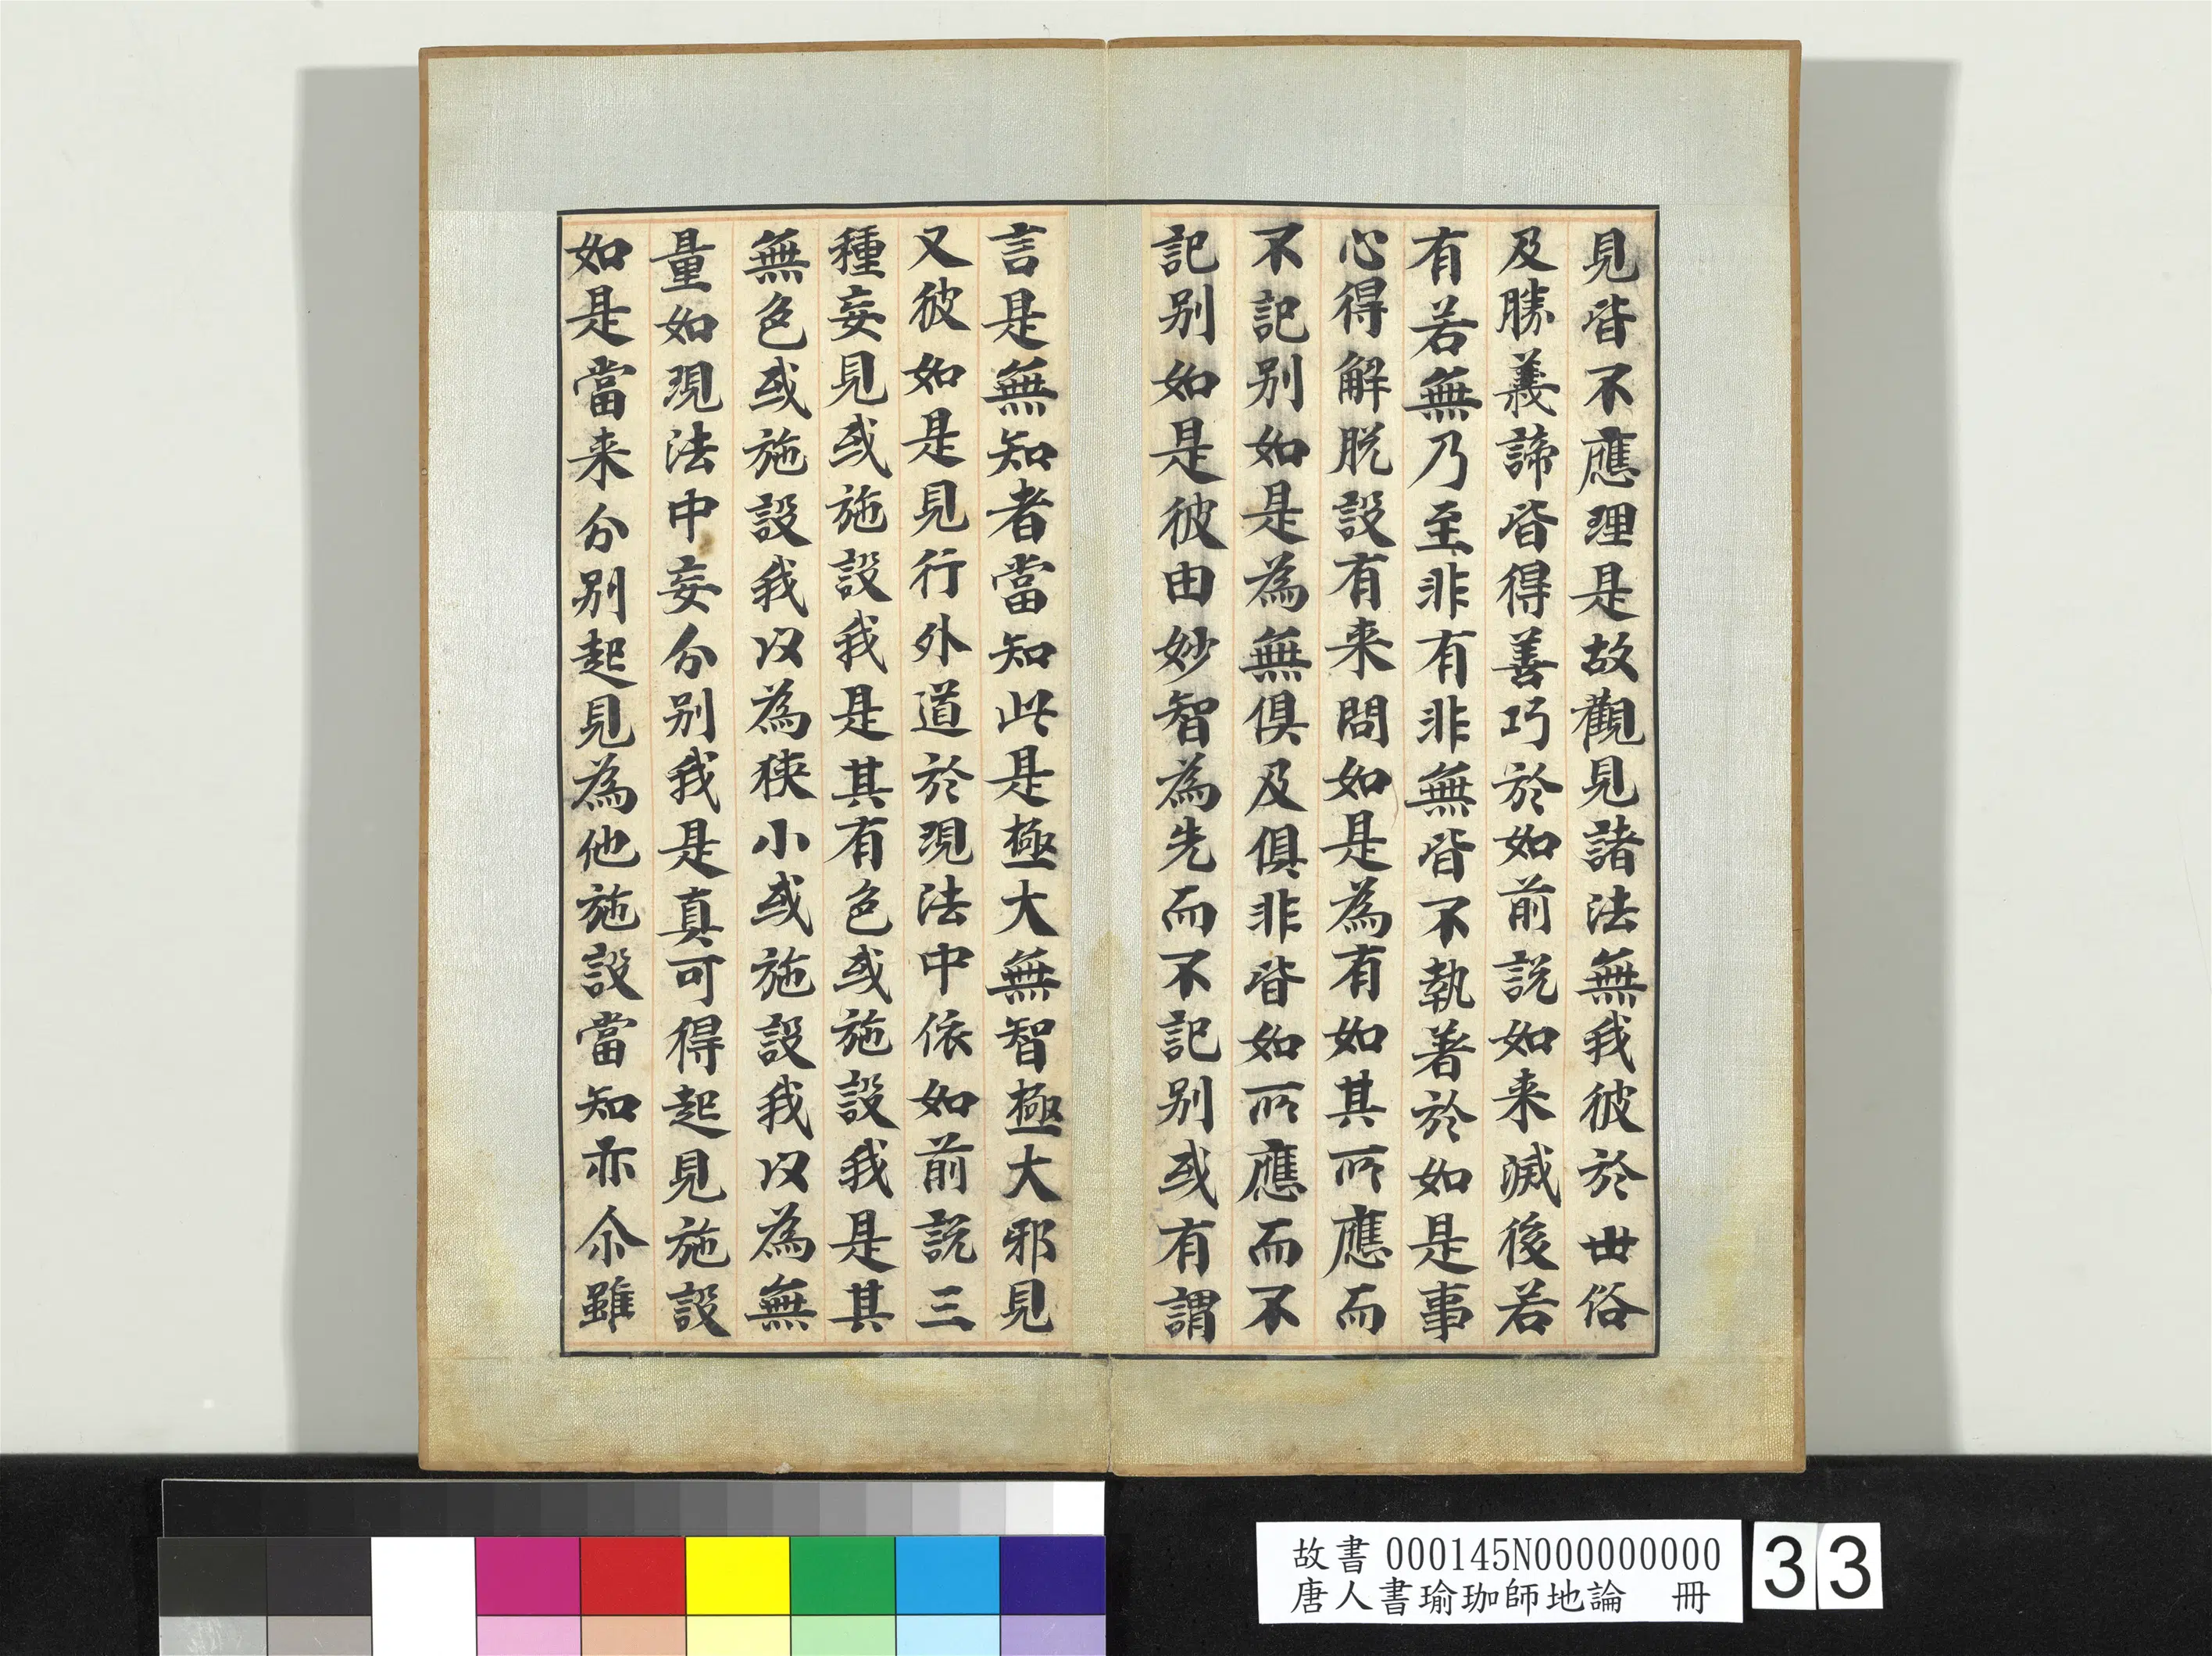 見皆不應理是故觀見諸法無我彼於世俗
及勝義諦皆得善巧於如前説如来滅後若
有若無乃至非有非無皆不執著於如是事
心得解脱設有来問如是為有如其所應而
不記别如是為無俱及俱非皆如所應而不
記别如是彼由妙智為先而不記别或有謂
言是無知者當知此是極大無智極大邪見
又彼如是見行外道於現法中依如前説三
種妄見或施設我是其有色或施設我是其
無色或施設我以為狹小或施設我以為無
量如現法中妄分别我是真可得起見施設
如是當来分别起見為他施設當知亦尒雖
故書 000145N000000000
唐人書瑜珈師地論 冊
33